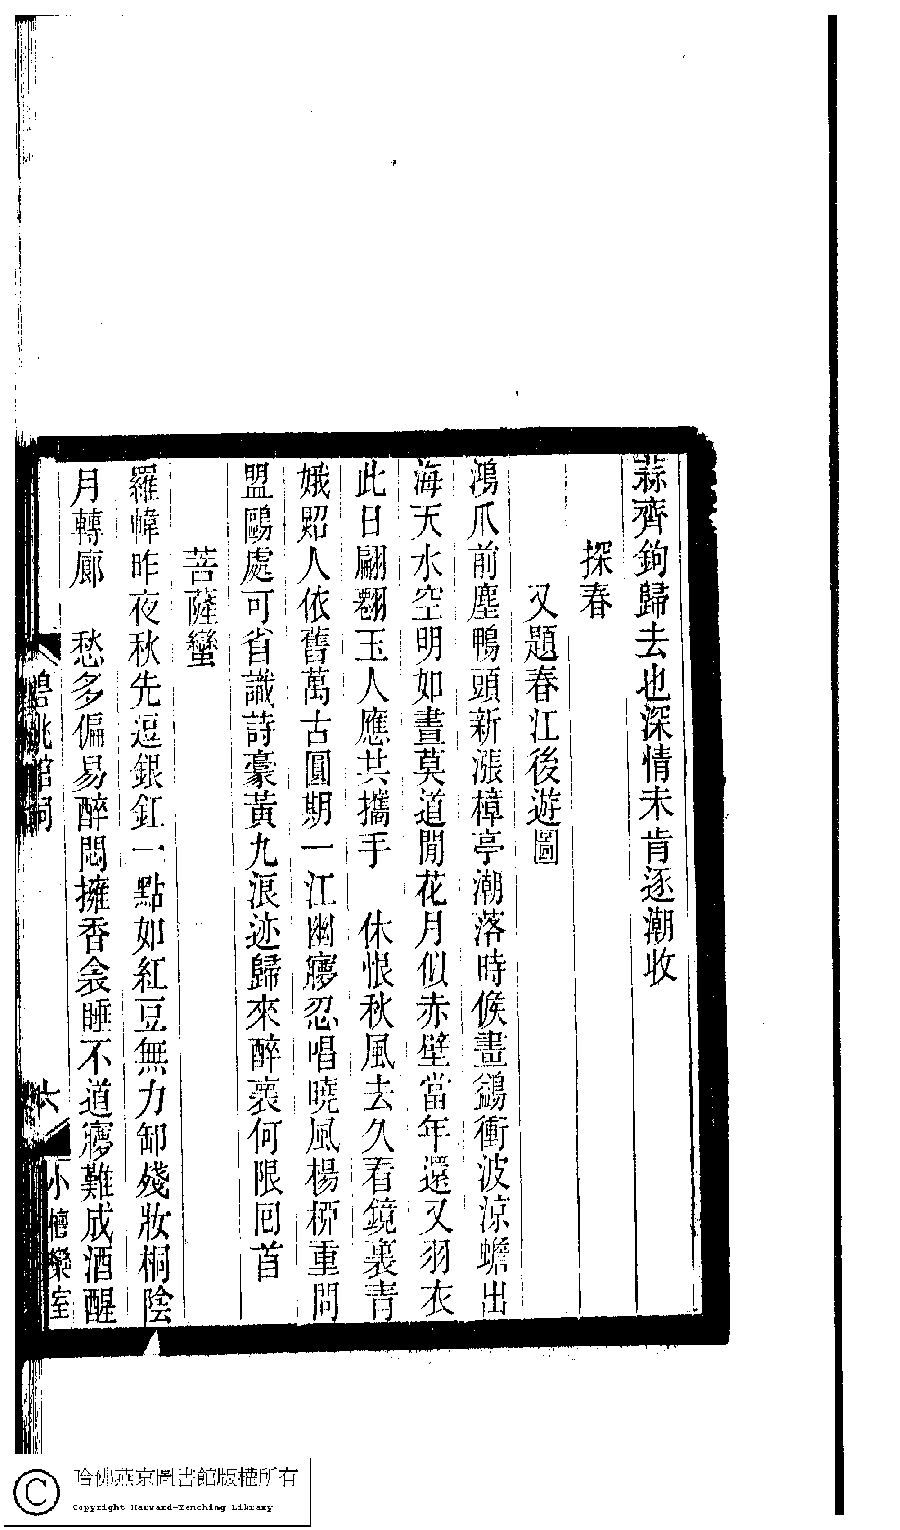 蒜齊鉤歸去也深情未肯逐潮收
探春
又題春江後遊圖
鴻爪前塵鴨頭新漲樟亭潮落時候畫鷁衝波涼蟾出
海天水空明如晝莫道閒花月似赤壁當年還又羽衣
此日翩翻玉人應共攜手　休恨秋風去久看鏡裏青
娥照人依舊萬古圓期一江幽夢忍唱曉風楊柳重問
盟鷗處可省識詩豪黃九浪迹歸來醉裏何限囘首
菩薩蠻
羅幃昨夜秋先逗銀釭一點如紅豆無力卸殘妝桐陰
月轉廊　愁多偏易醉悶擁香衾睡不道夢難成酒醒
碧 館詞
六
小檀欒室
哈佛燕京圖書館版權所有
Copyright Harvard-Yenching Library